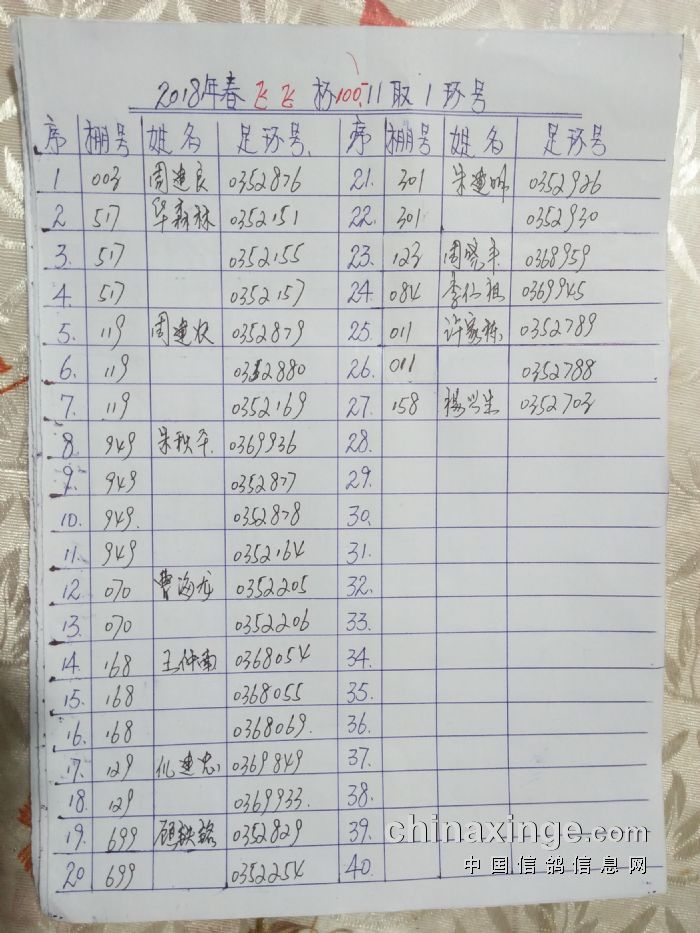 2018年春飞飞杯100元11取1环号
序 棚号 姓名 足环号 序 棚号 姓名 足环号
1 003 周建良 0352876 21. 301 朱建明 0352926
2 517 华森林 0352151 22. 301 0352930
3. 517 0352155 23. 123 周晓平 0368959
4. 517 0352157 24. 084 李仁祖 0369945
5. 119 周建农 0352879 25. 011 许家栋 0352789
6. 119 0352880 26. 011 0352788
7. 119 0352169 27. 158 杨兴生 0352703
8. 949 0369936 28.
9. 949 0352877 29.
10. 949. 0352878 30.
11. 949 0352164 31.
12. 070 曹海龙 0352205 32.
13. 070 0352206 33.
14. 168 王仲南 0368054 34.
15. 168 0368055 35.
16. 168 0368069. 36.
17. 129 建忠 0369849 37.
18. 129 0369933. 38.
19. 699 顾铁铭 0352829 39.
20 699 0352254 40.
chinaxinge.com
中国信鸽信息网